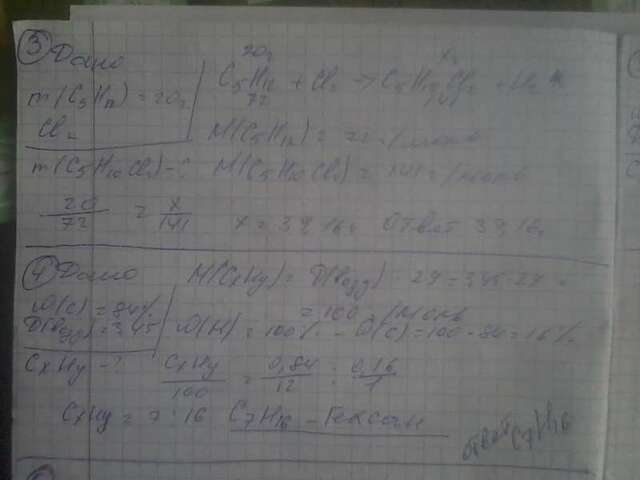 ③ Дано
m(C5H12) = 20г
Cl2
m(C5H10Cl2) = ?
20г xг
C5H12 + Cl2 → C5H10Cl2 +
72
M(C5H12) = 72 г/моль
M(C5H10Cl2) = 141 г/моль
20/72 = x/141 x = 39,16г Ответ 39,16г
④ Дано
ω(C) = 84%
D(возд) = 3,45
CxHy - ?
M(CxHy) = D(возд) · 29 = 3,45·29 =
= 100 г/моль
ω(H) = 100% - ω(C) = 100 - 84 = 16%
CxHy/100 = 0,84/12 : 0,16/1
CxHy = 7 : 16 C7H16 - Гексан